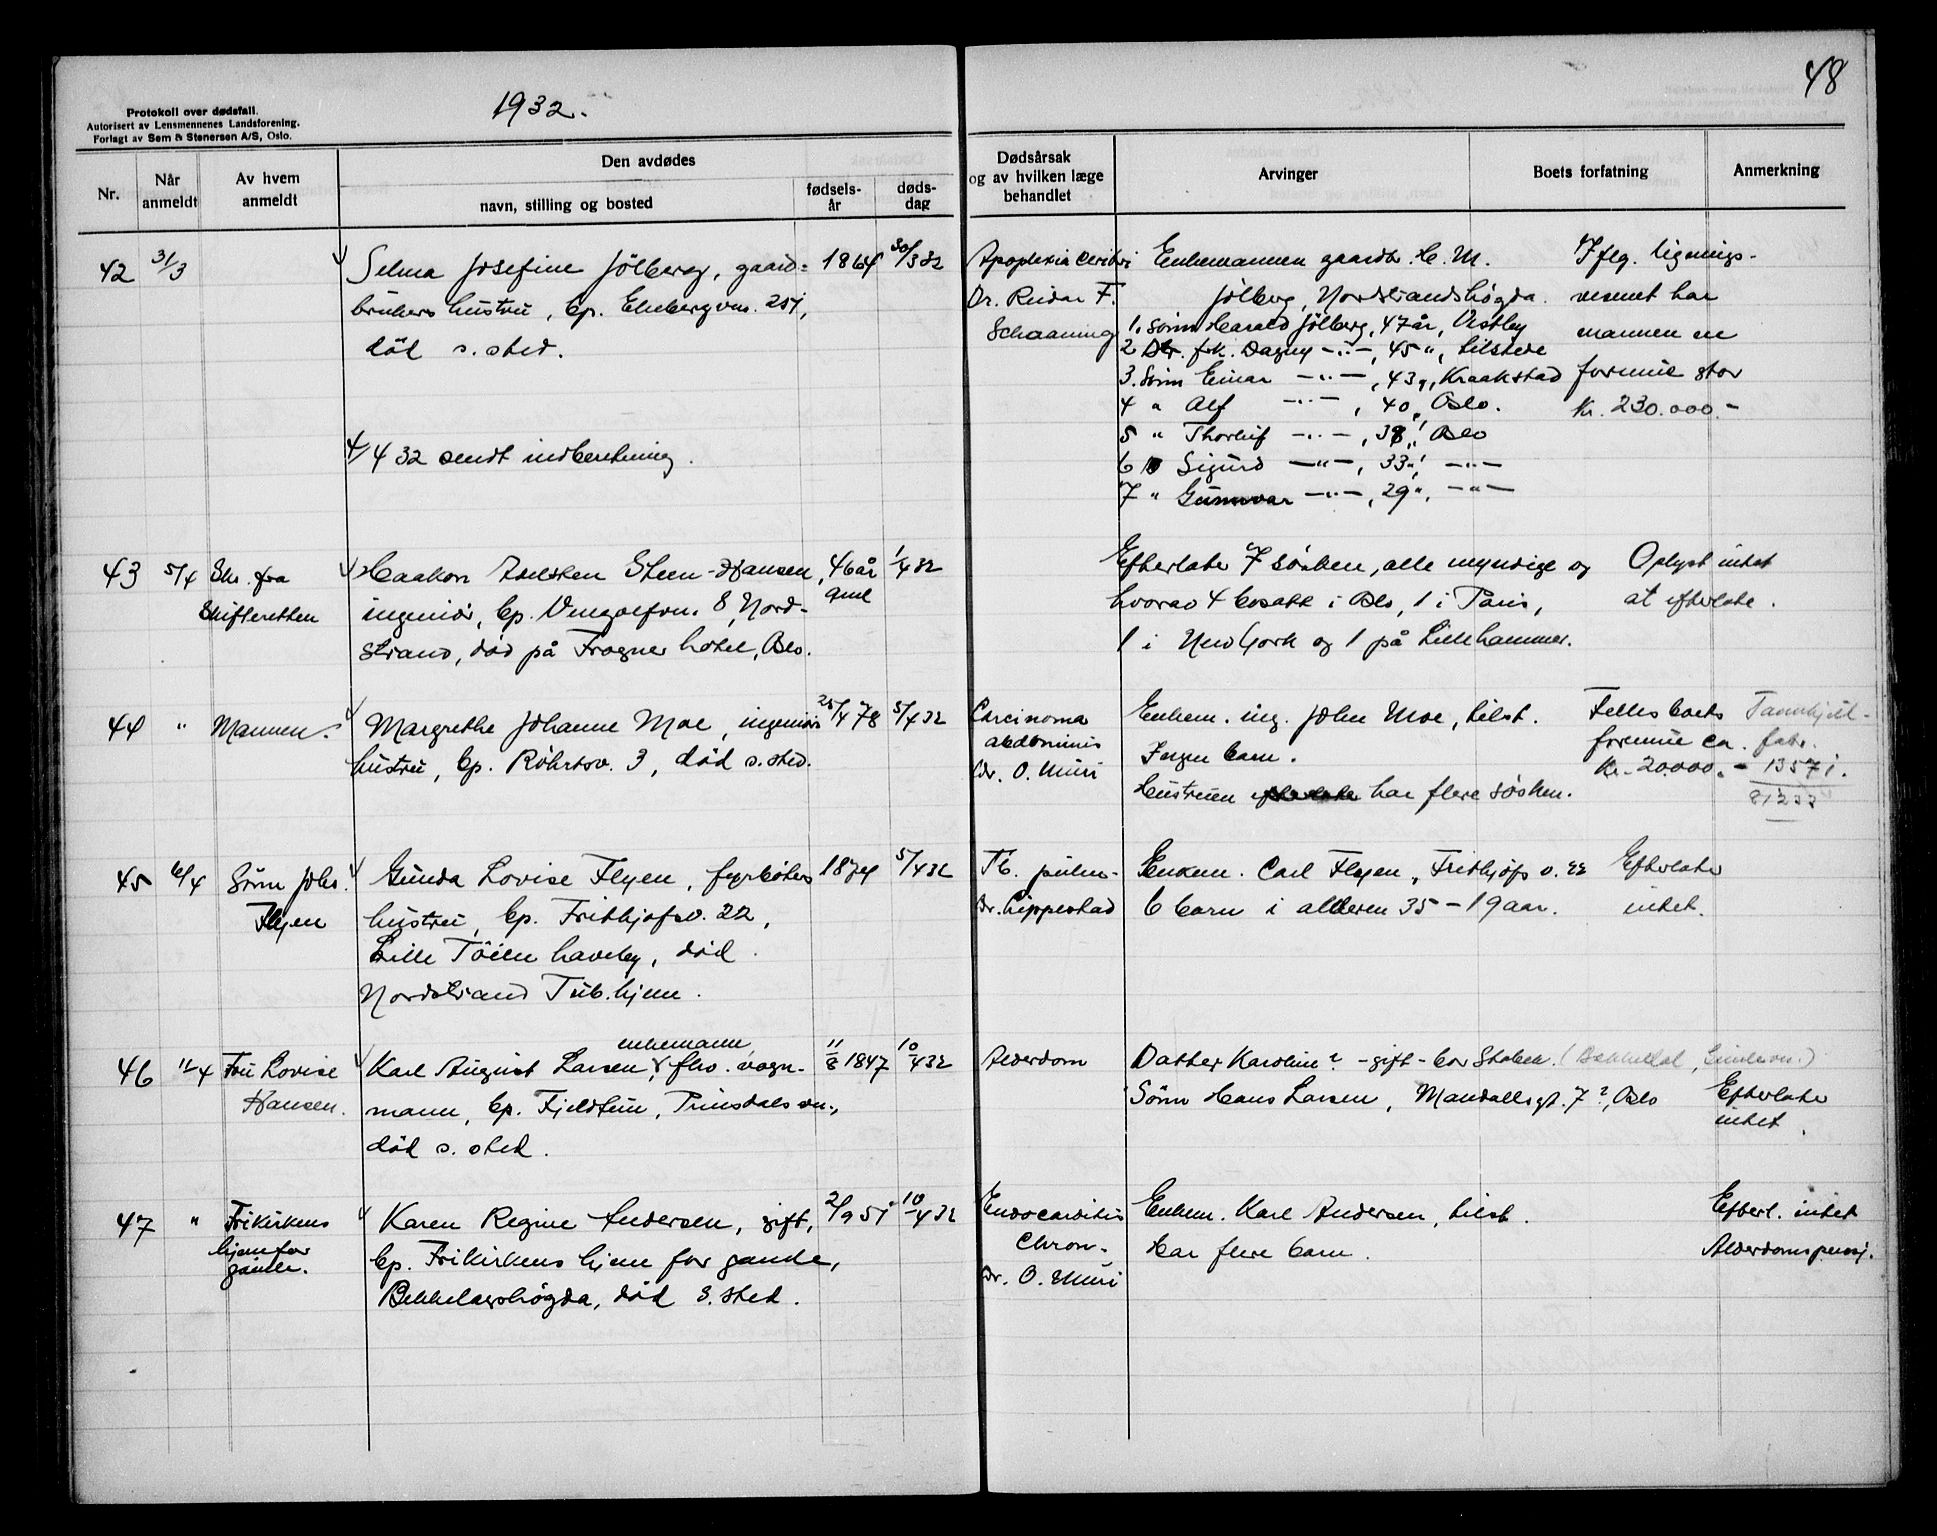 48
1932.
Protokoll over dødsfall.
Autorisert av Lensmennenes Landsforening.
Forlagt av Sem & Stenersen A/S, Oslo.
Nr.
Når anmeldt
Av hvem anmeldt
Den avdødes
navn, stilling og bosted
fødsels-år
døds-dag
Dødsårsak og av hvilken læge behandlet
Arvinger
Boets forfatning
Anmerkning
42 31/3
Selma Josefine Jölberg, gaard- 1864 30/3 32
brukers hustru, bp. Ekebergvn. 251,
död s. sted.
4/4 32 sendt indberetning.
Apoplexia cerebri
Dr. Reidar F.
Schaaning
Enkemannen gaardbr. H. M.
Jölberg, Nordstrandshögda.
1. Sönn Harald Jölberg, 47 år, Vestby
2 Dtr. frk. Dagny —"—, 45 ", tilstede
3. Sönn Einar —"—, 43 ", Kraakstad
4 " Alf —"—, 40 ", Oslo.
5 " Thorleif —"—, 38 ", Oslo
6 " Sigurd —"—, 33 ", —"—
7 " Gunnvar —"—, 29 ", —"—
Iflg. lignings-
vesenet har
mannen en
formue stor
Kr. 230.000.-
43 5/4 Skr. fra
Skifteretten
Haakon Steen-Hansen, 46 år gml 1/4 32
ingeniör, bp. 8, Nord-
strand, död på Frogner hotel, Oslo.
Efterlater 7 sösken, alle myndige og
hvorav 4 bosatt i Oslo, 1 i Paris,
1 i New York og 1 på Lillehammer.
Oplyst intet
at efterlate.
44 " Mannen.
Margrethe Johanne Moe, ingeniörs 25/4 78 5/4 32
hustru, bp. Röhrtsv. 3, död s. sted.
Carcinoma
abdominis
Dr. O. Muri
Enkem. ing. John Moe, tilst.
Ingen barn.
Hustruen har flere sösken.
Felles boets
formue ca.
Kr. 20.000.-
13571.
45 6/4 Sönn Johs.
Flyen
Gunda Lovise Flyen, fyrböters 1874 5/4 32
hustru, bp. Frithjofsv. 22,
Lille Töien haveby, död
Nordstrand Tub.hjem.
Tb. pulm.
Dr. Lippestad
Enkem. Carl Flyen, Frithjofs v. 22
6 barn i alderen 35 - 19 aar.
Efterlater
intet.
46 12/4 Fru Lovise
Hansen.
enkemann
Karl August Larsen, fhv. vogn- 11/8 1847 10/4 32
mann, bp. Fjeldtun, Prinsdalsvn.,
död s. sted.
Alderdom
Datter Karoline? - gift - bor Staben. (Bekkedal,
Sönn Hans Larsen, Mandallsgt. 7?, Oslo
Efterlater
intet.
47 " Frikirkens
hjem for
gamle.
Karen Regine Andersen, gift, 2/9 51 10/4 32
bp. Frikirkens hjem for gamle,
Bekkelagshögda, död s. sted.
Endocarditis
Chron.
Dr. O. Muri
Enkem. Karl Andersen, tilst.
Har flere barn.
Efterl. intet
Alderdomspensj.